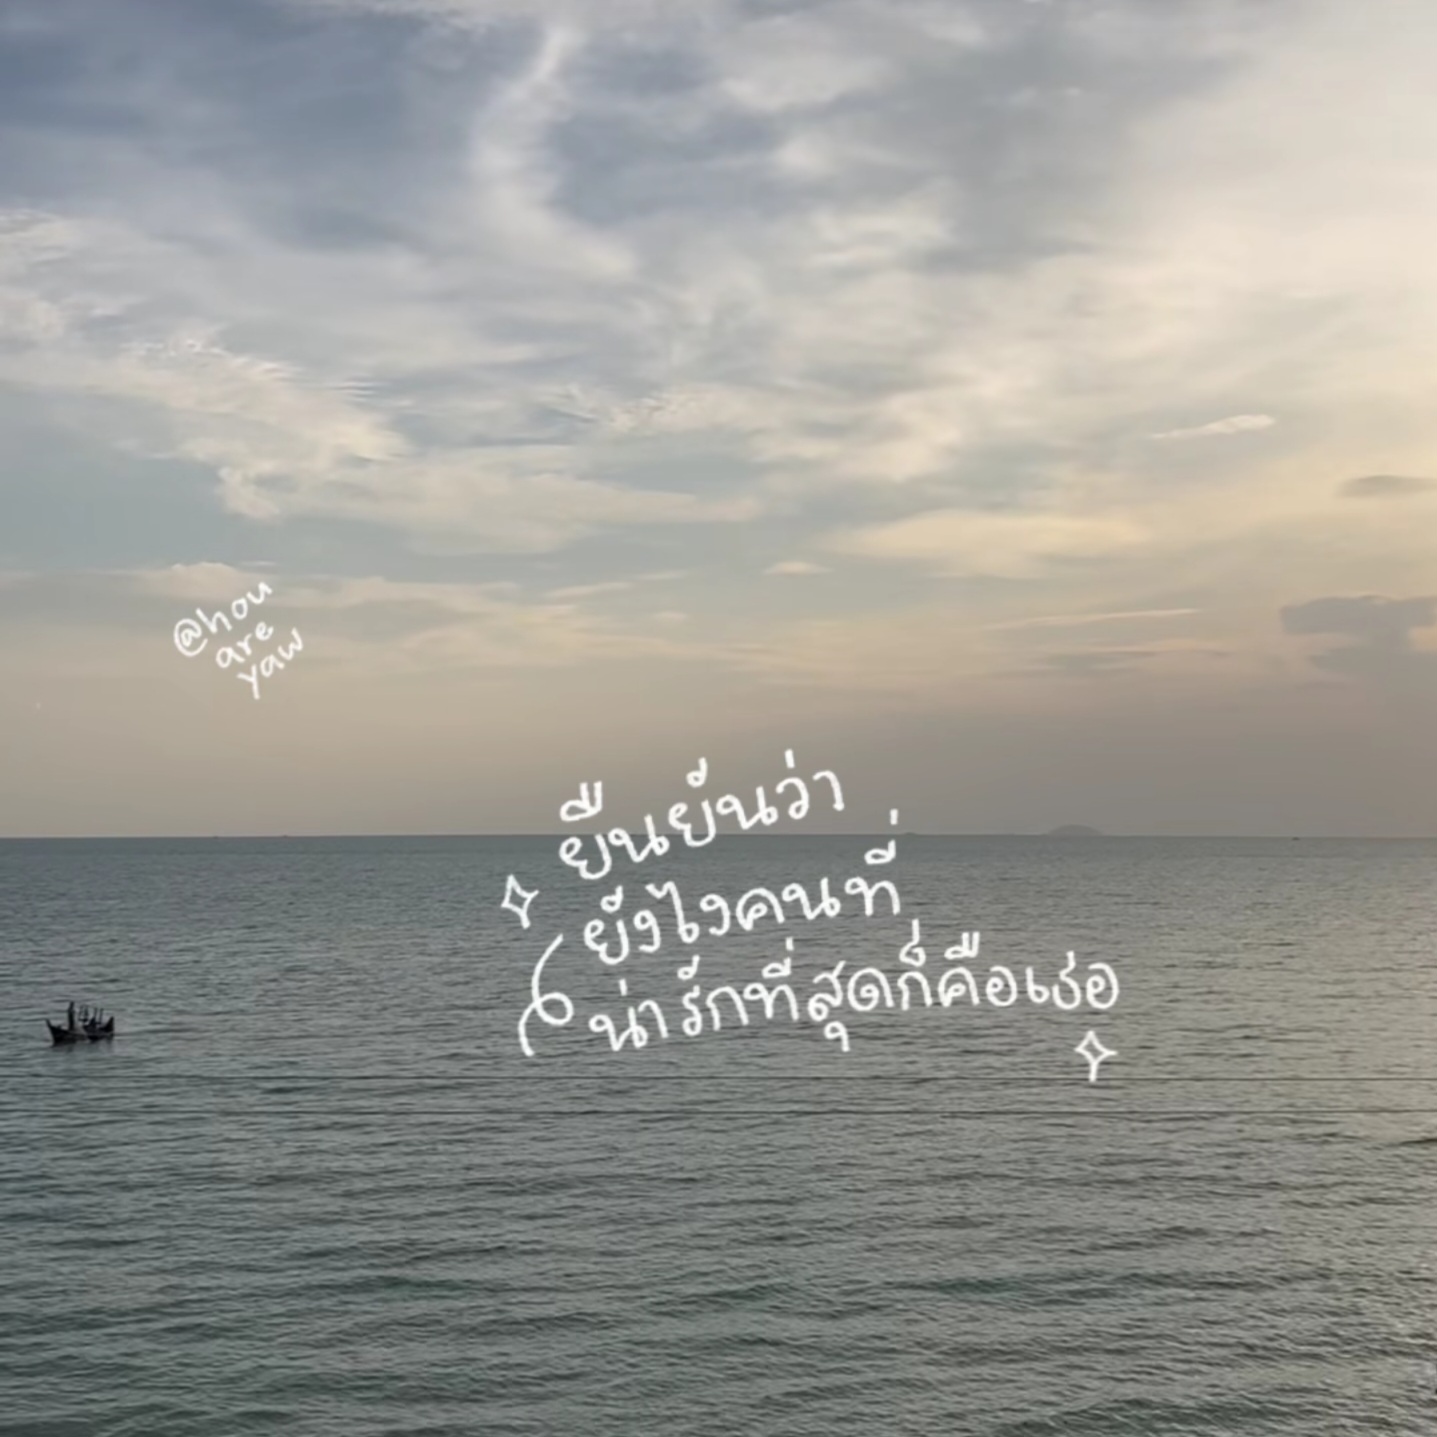 @hou
are
yaw
ยืนยันว่า
ยังไงคนที่
น่ารักที่สุดก็คือเธอ